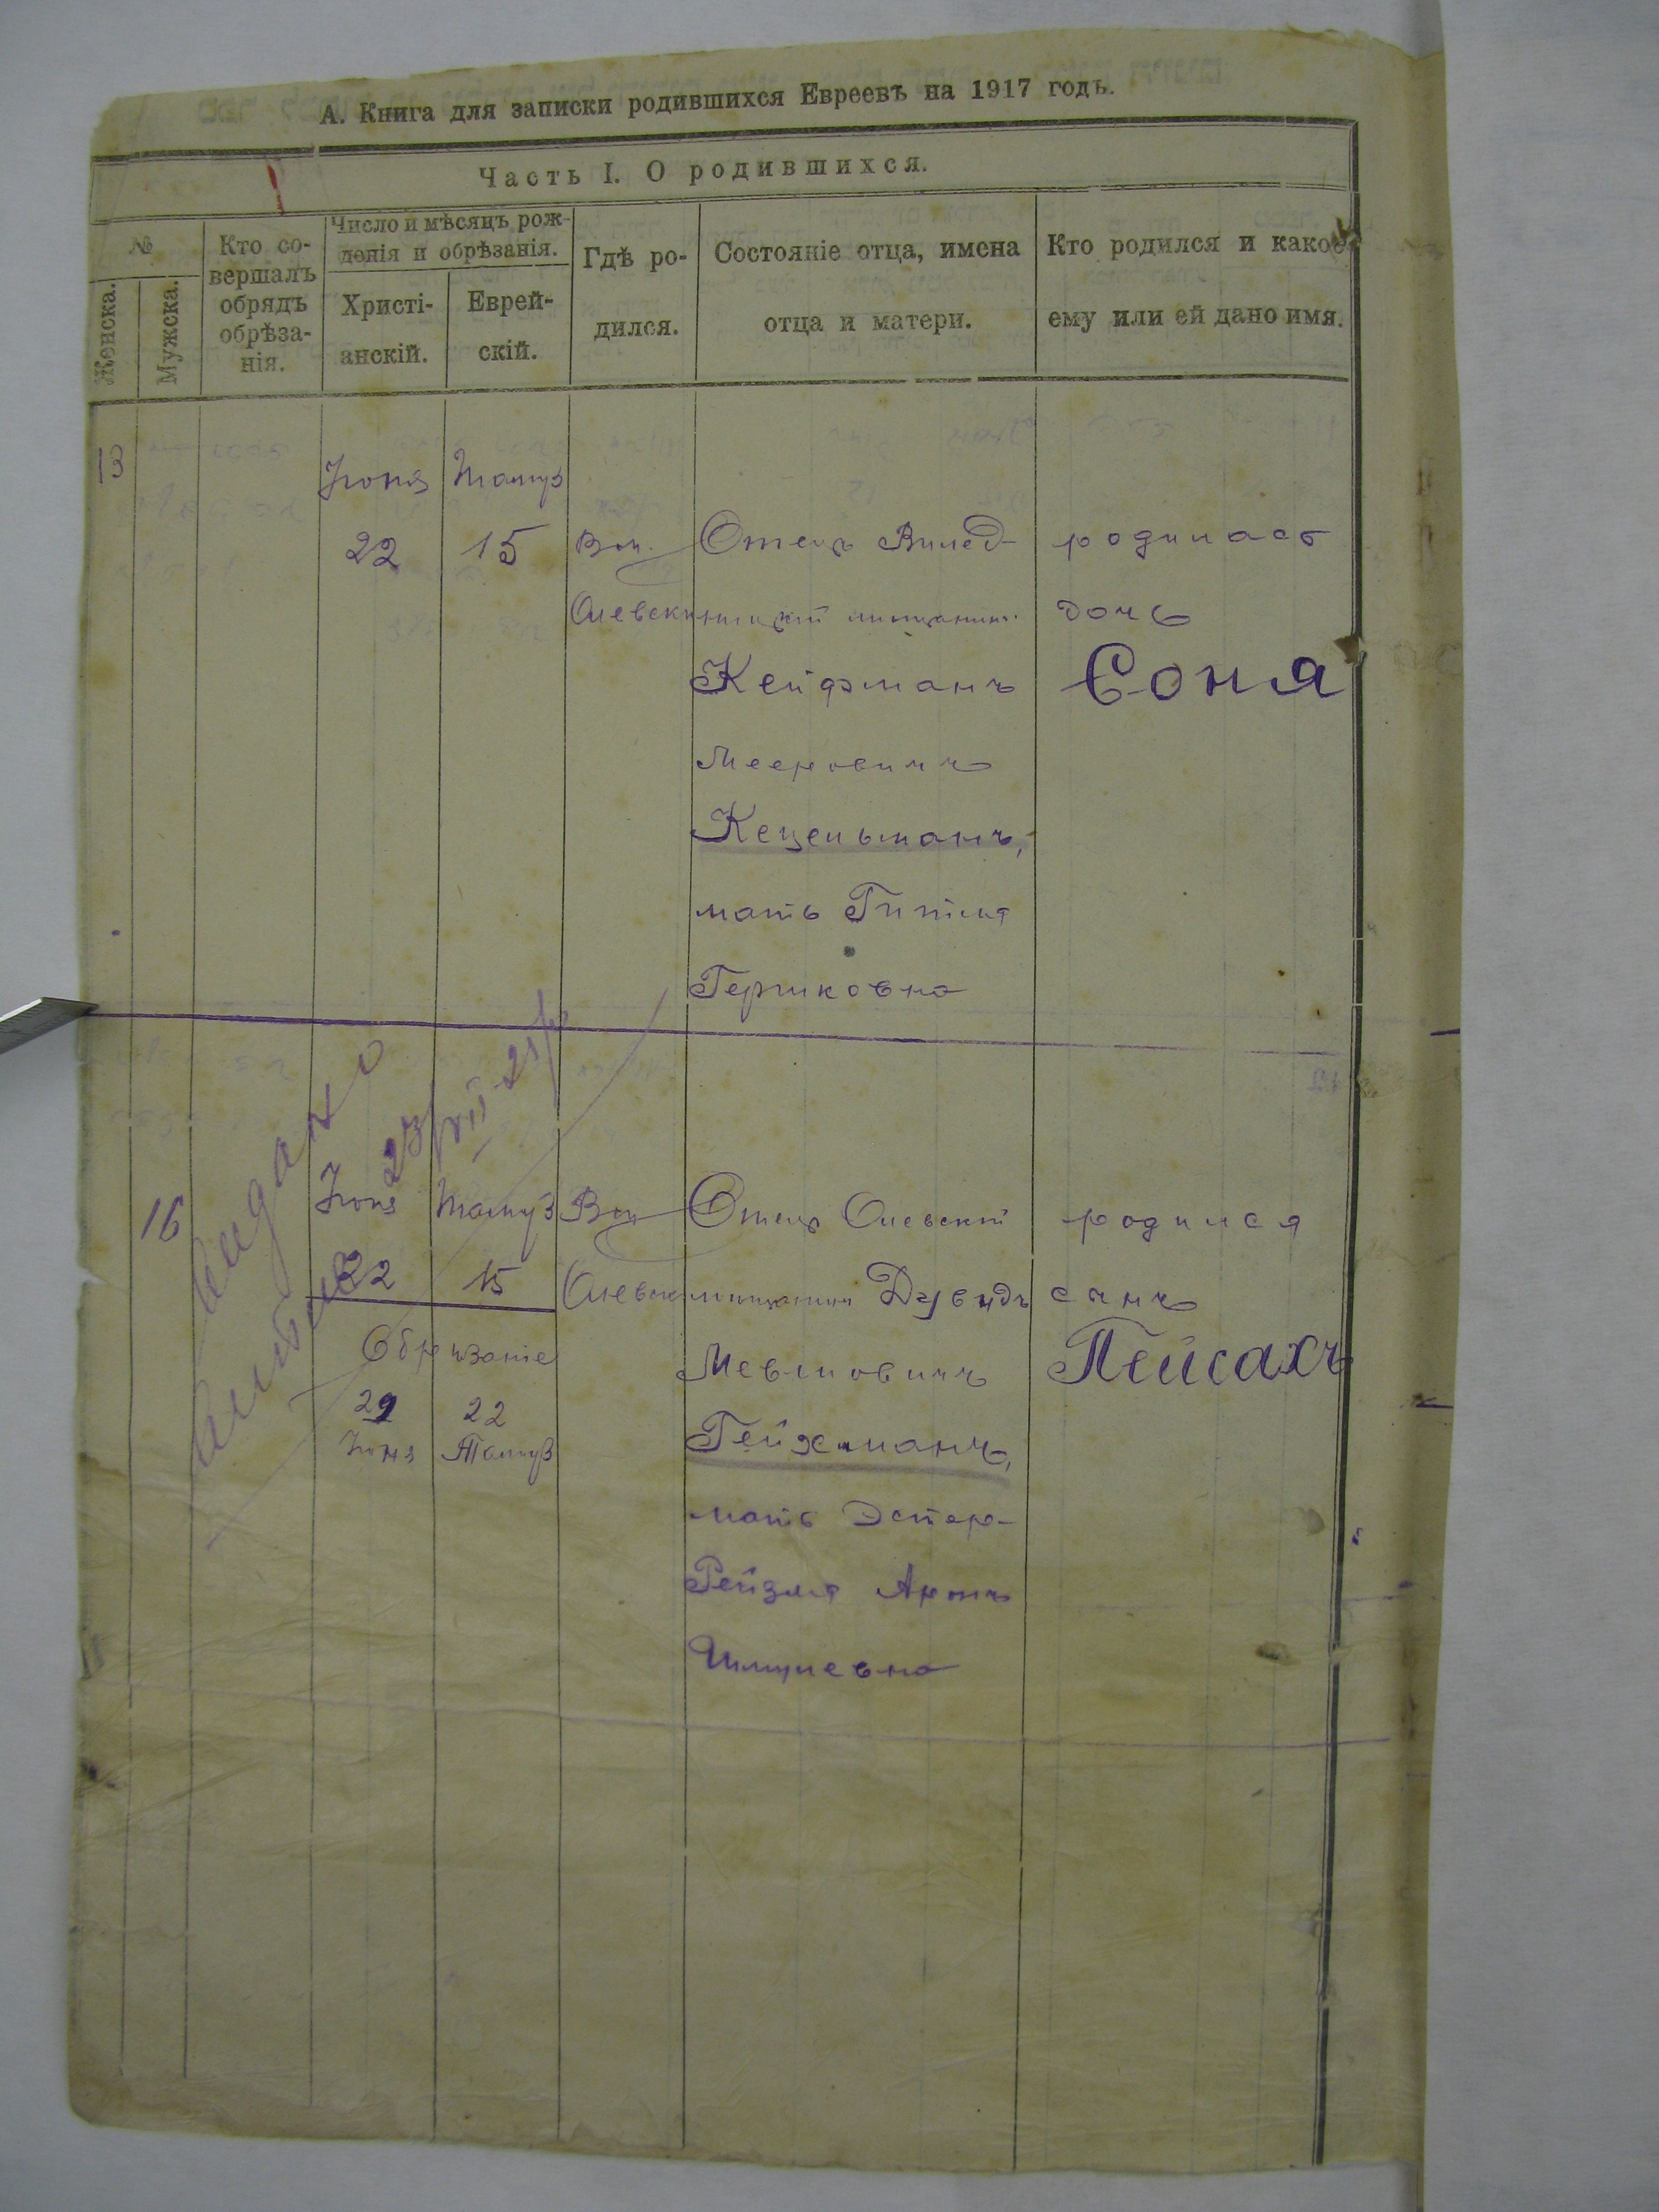 А. Книга для записки родившихся Евреевъ на 1917 годъ.
Часть I. О родившихся.
№
Женска.
Мужска.
Кто со-
вершалъ
обрядъ
обрѣза-
нія.
Число и мѣсяцъ рож-
денія и обрѣзанія.
Христі-
анскій.
Еврей-
скій.
Гдѣ ро-
дился.
Состояніе отца, имена
отца и матери.
Кто родился и какое
ему или ей дано имя.
13
Іюня
22
Тамуз
15
Олевск
Отецъ
мищанинъ
Кейфманъ
Мееровичъ
Кецельманъ,
мать Гитля
Гершковна
родилась
дочь
Соня
16
Іюня
22
Тамуз
15
Обрізаніе
29
Іюня
22
Тамуз
Олевск
Отецъ Олевскій
мищанин Дувидъ
Мевшовичъ
Гейхманъ,
мать Эстер-
Рейзля Аронъ
Шмулевна
родился
сынъ
Пейсахъ
Видано
23/VII-21